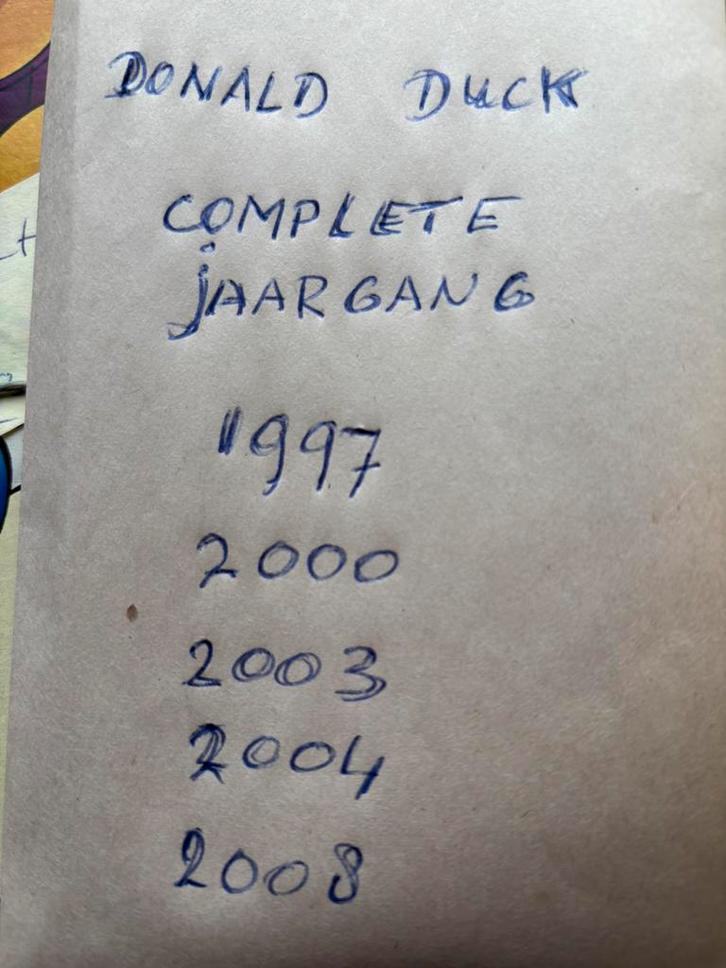 DONALD DUCK
COMPLETE
JAARGANG
1997
2000
2003
2004
2008